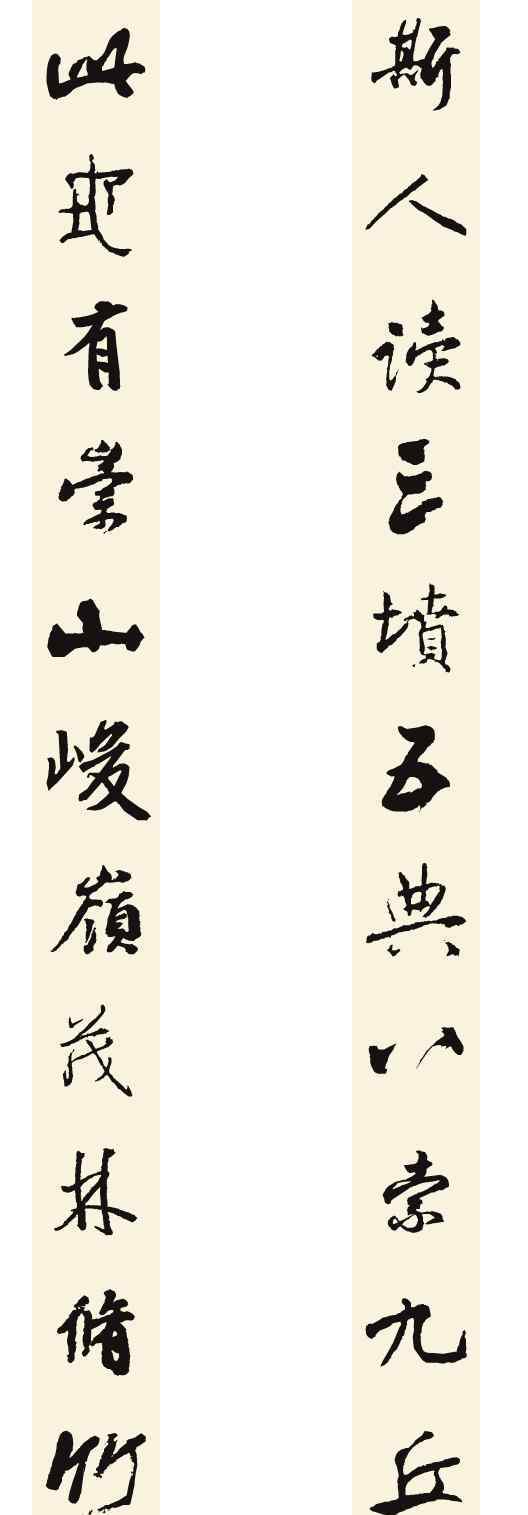 斯人读三墳五典八索九丘
此地有崇山峻嶺茂林脩竹